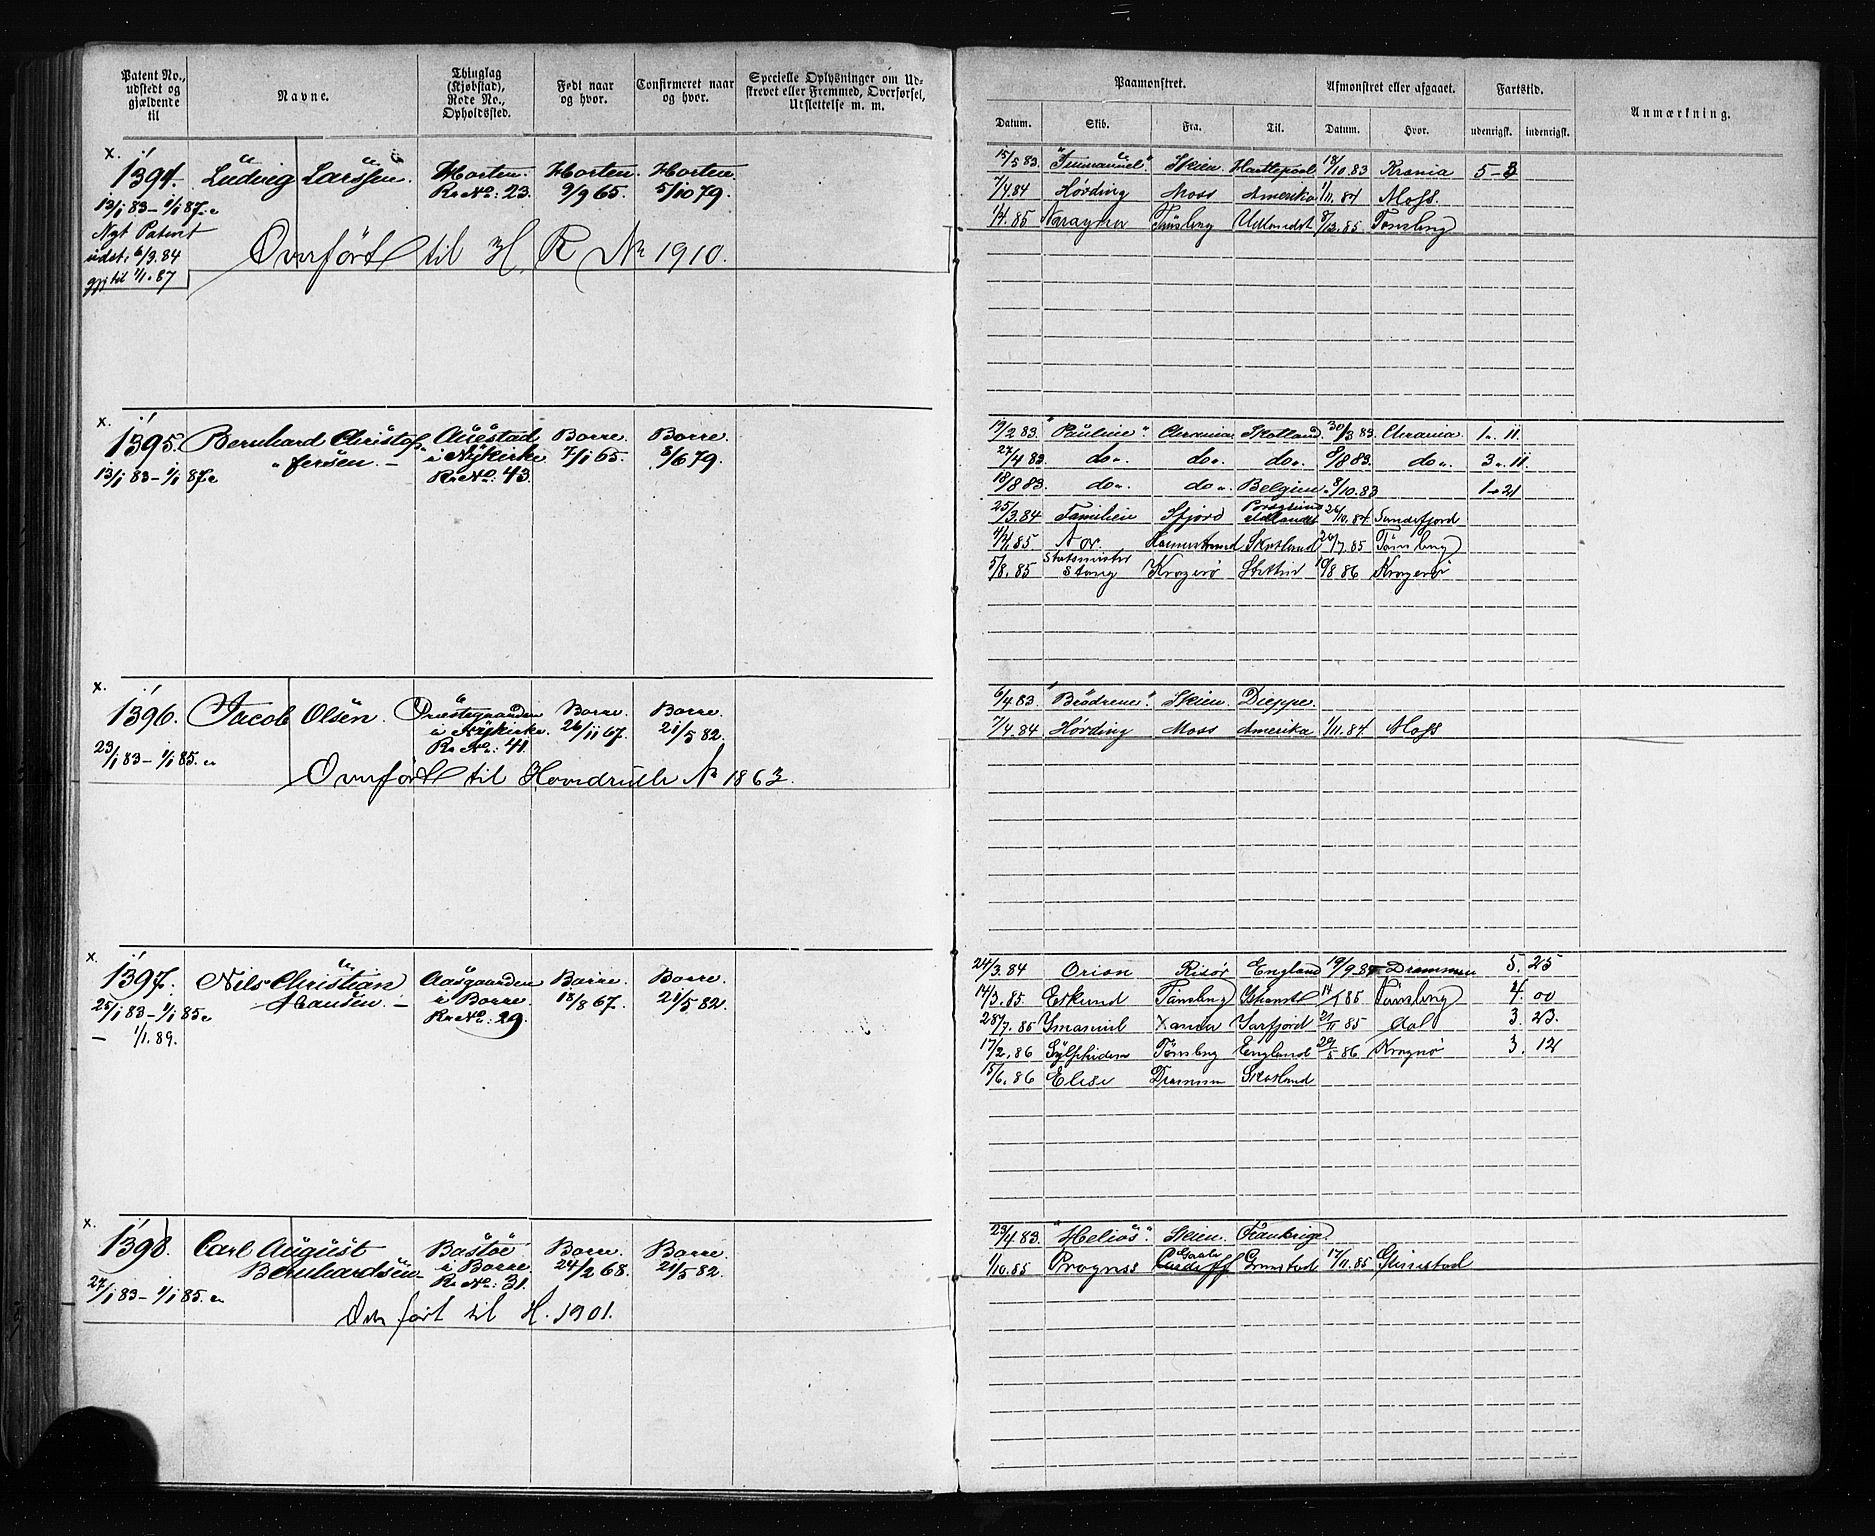 Patent No., udstedt og gjældende til
Navne.
Thinglag (Kjøbstad), Rode No., Opholdssted.
Født naar og hvor.
Confirmeret naar og hvor.
Specielle Oplysninger om Udskrevet eller Fremmed, Overførsel, Udslettelse m. m.
Paamønstret.
Afmønstret eller afgaaet.
Fartstid.
Anmærkning.
Datum. Skib. Fra. Til. Datum. Hvor. udenrigsk. indenrigsk.
x.
1394. Ludvig Larssen. Horten. Horten. Horten.
R. No: 23. 9/9 65. 5/10 79.
13/1 83 – 1/1 87.
Nyt Patent
udst. 6/3. 84
gj. til 1/1. 87
Overført til H. R No 1910.
15/5 83. "Immanuel". Skien. Hartlepool 18/10 83 Krania 5 - 3
7/4. 84 Hørding Moss Amerika 1/11. 84 Moss.
85 Tønsberg Udlandet 85 Tønsberg
x.
1395. Bernhard Christof- Auestad Borre. Borre.
fersen. – i Nykirke 7/1 65. 8/6 79.
13/1 83 – 1/1 87. R. No: 43.
19/2 83. "Pauline". Chrania Skotland. 30/3 83. Chrania 1 " 11.
27/4 83. do ". do ". do ". 8/8 83. do ". 3 " 11.
18/8 83. do ". do ". Belgien. 8/10. 83 1 - 21
25/3. 84 Familien Sfjord Porsgrund Udlandet 26/10. 84 Sandefjord
85. Nor. Holmestrand Skotland 7. 85 Tønsberg
5/8. 85 Statsminister Stang Kragerø Stettin 8 86 Kragerø
x.
1396. Jacob Olsen. Præstegaarden Borre. Borre.
i Nykirke. 26/11 67. 21/5 82.
R. No: 41.
23/1 83 – 1/1 85.
Overført til Hovedrulle No 1863.
6/4 83. "Brødrene". Skien. Dieppe.
7/4. 84 Hørding Moss Amerika 1/11. 84. Moss
x.
1397. Nils Christian Aasgaarden Borre. Borre.
Hansen. – i Borre. 18/8 67. 21/5 82.
25/1 83 – 1/1 85 R. No: 29.
– 1/1. 89.
24/3. 84 Orion Risør England 19/9. 84 Drammen 5. 25
14/3. 85. Tønsberg 85 Tønsberg 4. 00
28/7. 85 Imanuel 85 3. 23.
17/2. 86 Sylphiden Tønsberg England 29/5 86 Kragerø 3. 12
15/6. 86 Elise Drammen Skotland
x.
1398. Carl August Bastøe Borre. Borre.
Bernhardsen i Borre 24/2 68. 21/5 82.
27/1 83 – 1/1 85. R. No: 31.
Overført til H. 1901.
23/4 83. "Helios". Skien. Frankrige
1/10. 85 Prognos Cardiff Grimstad 17/11. 85 Grimstad